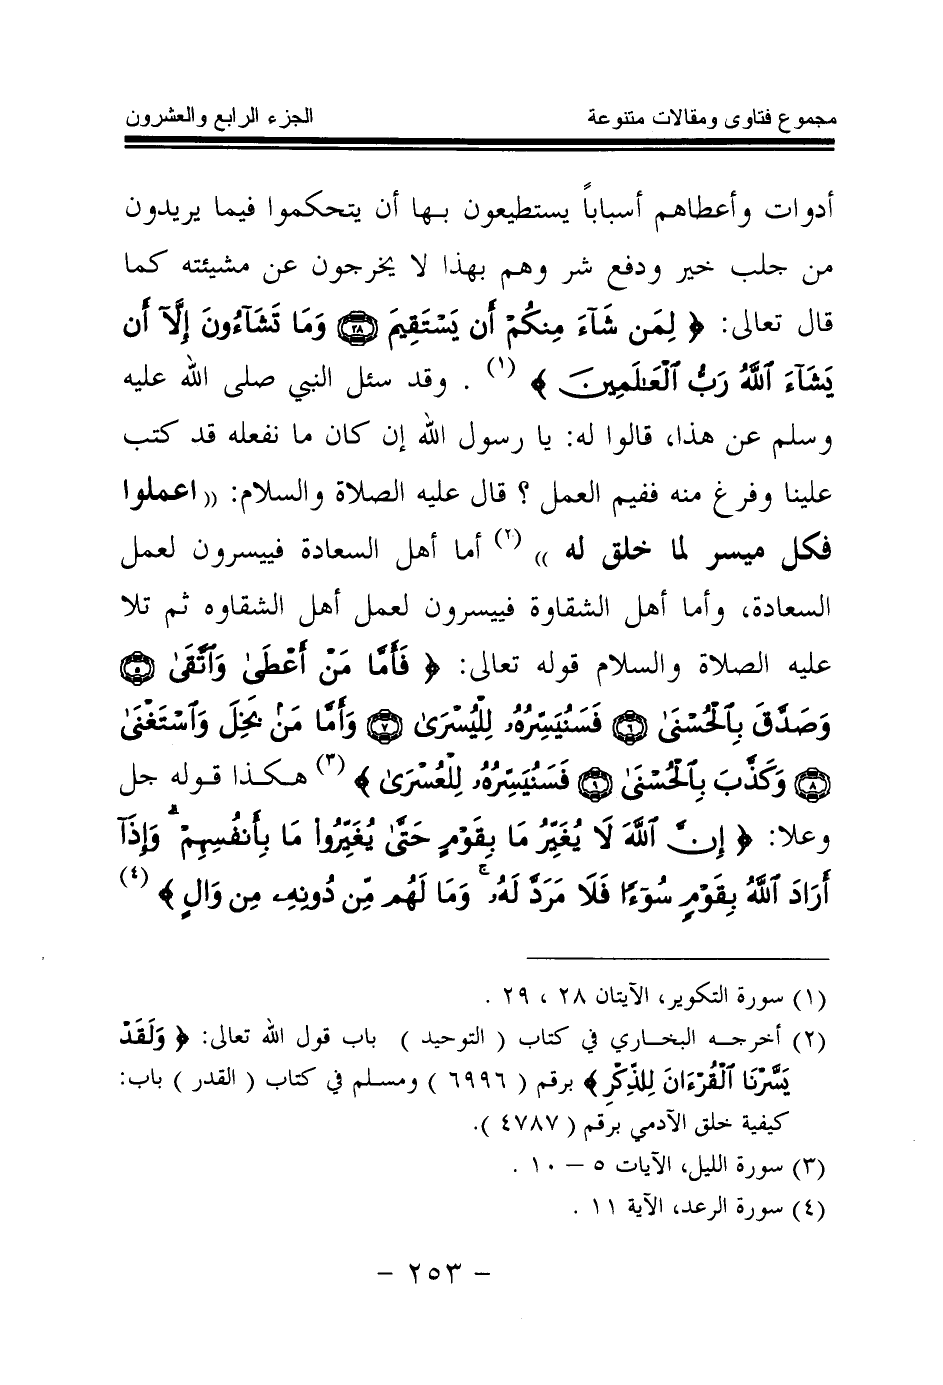 مجموع فتاوى ومقالات متنوعة الجزء الرابع والعشرون
أدوات وأعطاهم أسباباً يستطيعون بها أن يتحكموا فيما يريدون
من جلب خير ودفع شر وهم بهذا لا يخرجون عن مشيئته كما
قال تعالى: ﴿ لِمَن شَآءَ مِنكُمْ أَن يَسْتَقِيمَ ۝٢٨ وَمَا تَشَآءُونَ إِلَّآ أَن
يَشَآءَ ٱللَّهُ رَبُّ ٱلْعَـٰلَمِينَ ﴾ (١) . وقد سئل النبي صلى الله عليه
وسلم عن هذا، قالوا له: يا رسول الله إن كان ما نفعله قد كتب
علينا وفرغ منه ففيم العمل ؟ قال عليه الصلاة والسلام: (( اعملوا
فكل ميسر لما خلق له )) (٢) أما أهل السعادة فييسرون لعمل
السعادة، وأما أهل الشقاوة فييسرون لعمل أهل الشقاوه ثم تلا
عليه الصلاة والسلام قوله تعالى: ﴿ فَأَمَّا مَنْ أَعْطَىٰ وَٱتَّقَىٰ ۝٥
وَصَدَّقَ بِٱلْحُسْنَىٰ ۝٦ فَسَنُيَسِّرُهُۥ لِلْيُسْرَىٰ ۝٧ وَأَمَّا مَنۢ بَخِلَ وَٱسْتَغْنَىٰ
۝٨ وَكَذَّبَ بِٱلْحُسْنَىٰ ۝٩ فَسَنُيَسِّرُهُۥ لِلْعُسْرَىٰ ﴾ (٣) هكذا قوله جل
وعلا: ﴿ إِنَّ ٱللَّهَ لَا يُغَيِّرُ مَا بِقَوْمٍ حَتَّىٰ يُغَيِّرُوا۟ مَا بِأَنفُسِهِمْ ۗ وَإِذَآ
أَرَادَ ٱللَّهُ بِقَوْمٍ سُوٓءًا فَلَا مَرَدَّ لَهُۥ ۚ وَمَا لَهُم مِّن دُونِهِۦ مِن وَالٍ ﴾ (٤)
(١) سورة التكوير، الآيتان ٢٨ ، ٢٩ .
(٢) أخرجه البخاري في كتاب ( التوحيد ) باب قول الله تعالى: ﴿ وَلَقَدْ
يَسَّرْنَا ٱلْقُرْءَانَ لِلذِّكْرِ ﴾ برقم ( ٦٩٩٦ ) ومسلم في كتاب ( القدر ) باب:
كيفية خلق الآدمي برقم ( ٤٧٨٧ ).
(٣) سورة الليل، الآيات ٥ – ١٠ .
(٤) سورة الرعد، الآية ١١ .
- ٢٥٣ -